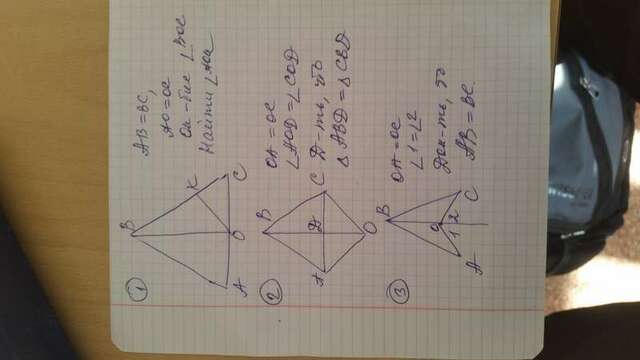 ①
A
O
C
K
B
AB=BC,
AO=OC
OK-бис ∠BOC
Найти ∠AOK
②
A
O
D
B
C
OA=OC
∠AOD=∠COD
Д-ть, что
△ABD=△CBD
③
A
1
2
O
C
B
OA=OC
∠1=∠2
Док-ть, что
AB=BC.